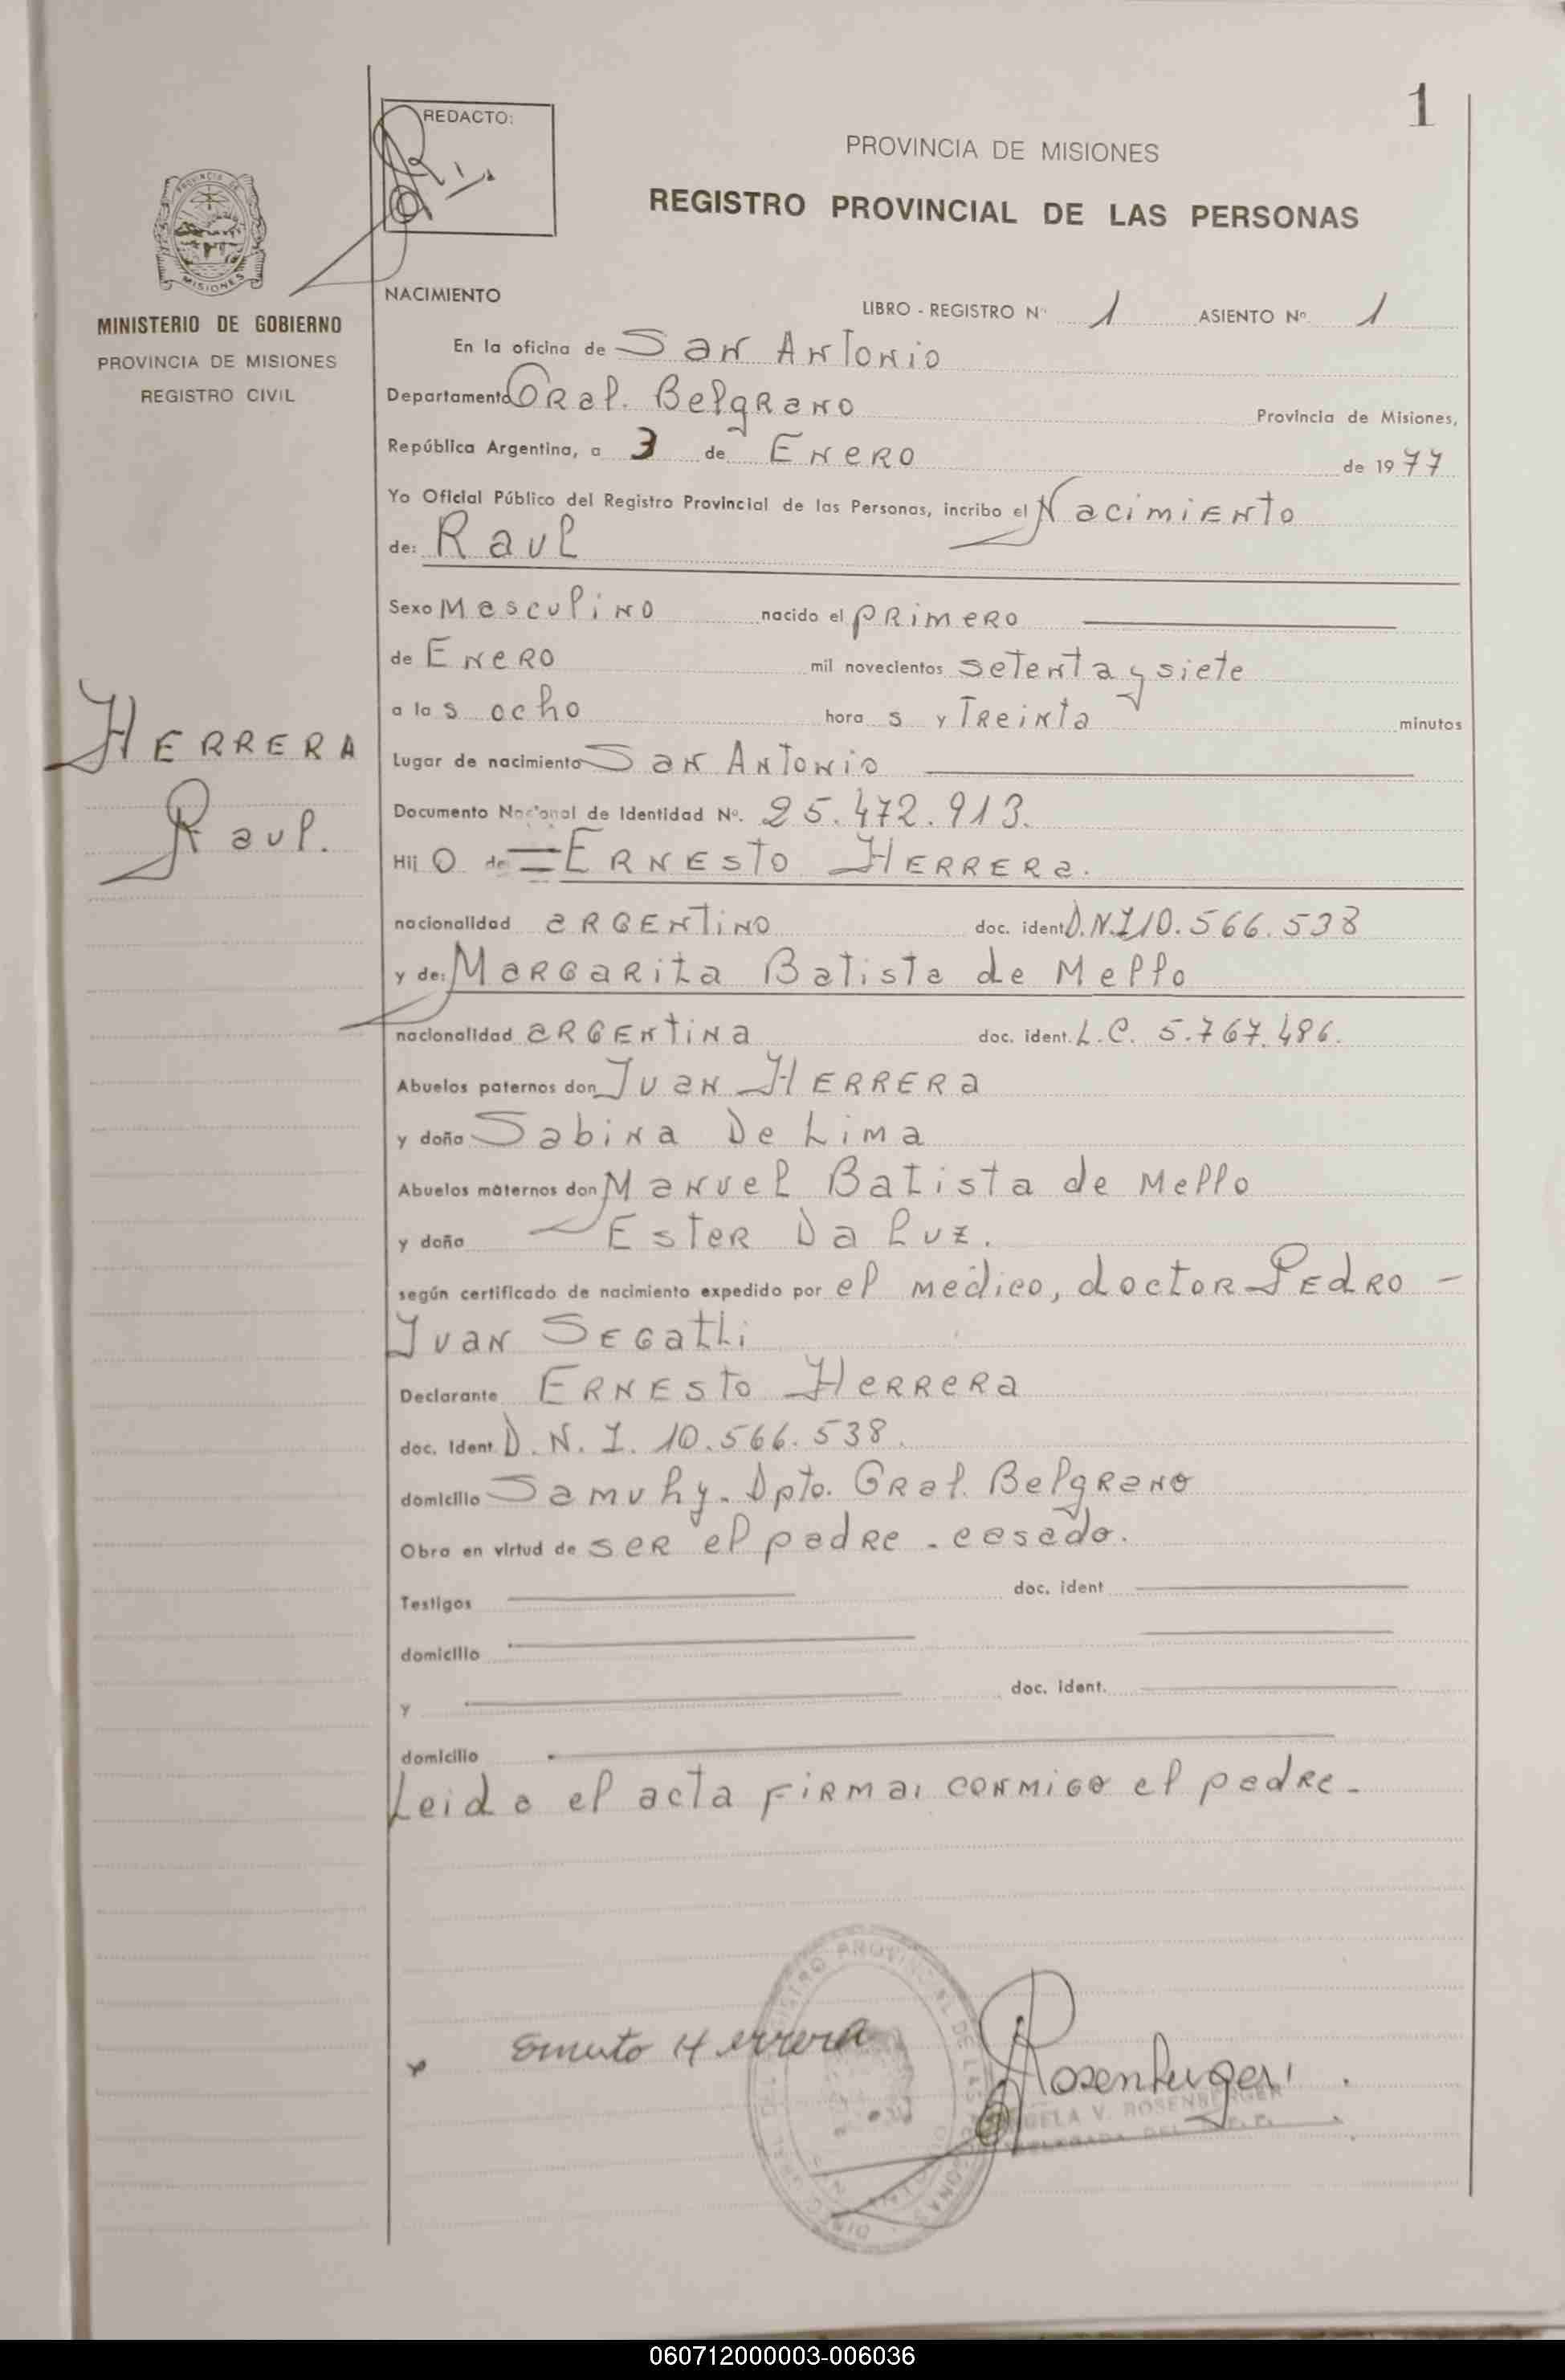 1
REDACTO:
PROVINCIA DE MISIONES
REGISTRO PROVINCIAL DE LAS PERSONAS
PROVINCIA DE
MISIONES
MINISTERIO DE GOBIERNO
PROVINCIA DE MISIONES
REGISTRO CIVIL
NACIMIENTO
LIBRO - REGISTRO Nº 1 ASIENTO Nº 1
En la oficina de San Antonio
Departamento Gral. Belgrano Provincia de Misiones,
República Argentina, a 3 de Enero de 1977
Yo Oficial Público del Registro Provincial de las Personas, incribo el Nacimiento
de: Raul
Sexo Masculino nacido el primero
de Enero mil novecientos setenta y siete
a las ocho horas y Treinta minutos
HERRERA
Raul.
Lugar de nacimiento San Antonio
Documento Nacional de Identidad Nº. 25.472.913.
Hijo de = Ernesto Herrera.
nacionalidad argentino doc. ident D.N.I 10.566.538
y de: Margarita Batista de Mello
nacionalidad argentina doc. ident. L.C. 5.767.486.
Abuelos paternos don Juan Herrera
y doña Sabina De Lima
Abuelos maternos don Manuel Batista de Mello
y doña Ester Da Luz.
según certificado de nacimiento expedido por el médico, doctor Pedro -
Juan Segatti
Declarante Ernesto Herrera
doc. Ident. D.N.I. 10.566.538.
domicilio Samuhy. Dpto. Gral. Belgrano
Obra en virtud de ser el padre - casado.
Testigos doc. ident
domicilio
y doc. ident.
domicilio
Leida el acta firma conmigo el padre.
Ernesto Herrera
Rosenberger
V. ROSENBERGER
REGISTRO PROVINCIAL DE LAS PERSONAS
060712000003-006036